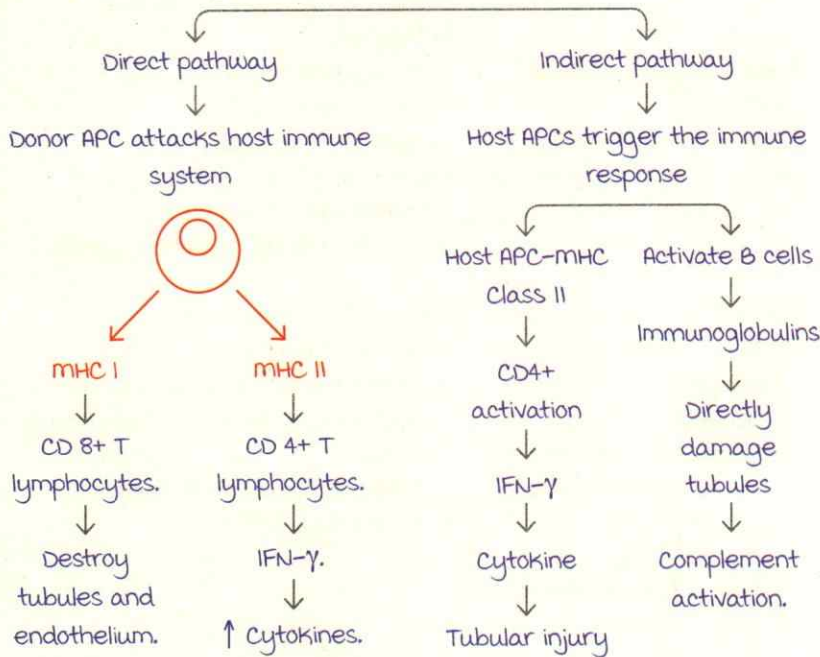 Direct pathway
Donor APC attacks host immune
system
MHC I
CD 8+ T
lymphocytes.
Destroy
tubules and
endothelium.
MHC II
CD 4+ T
lymphocytes.
IFN-γ.
↑ Cytokines.
Indirect pathway
Host APCs trigger the immune
response
Host APC-MHC
Class II
CD4+
activation
IFN-γ
Cytokine
Tubular injury
Activate B cells
Immunoglobulins
Directly
damage
tubules
Complement
activation.